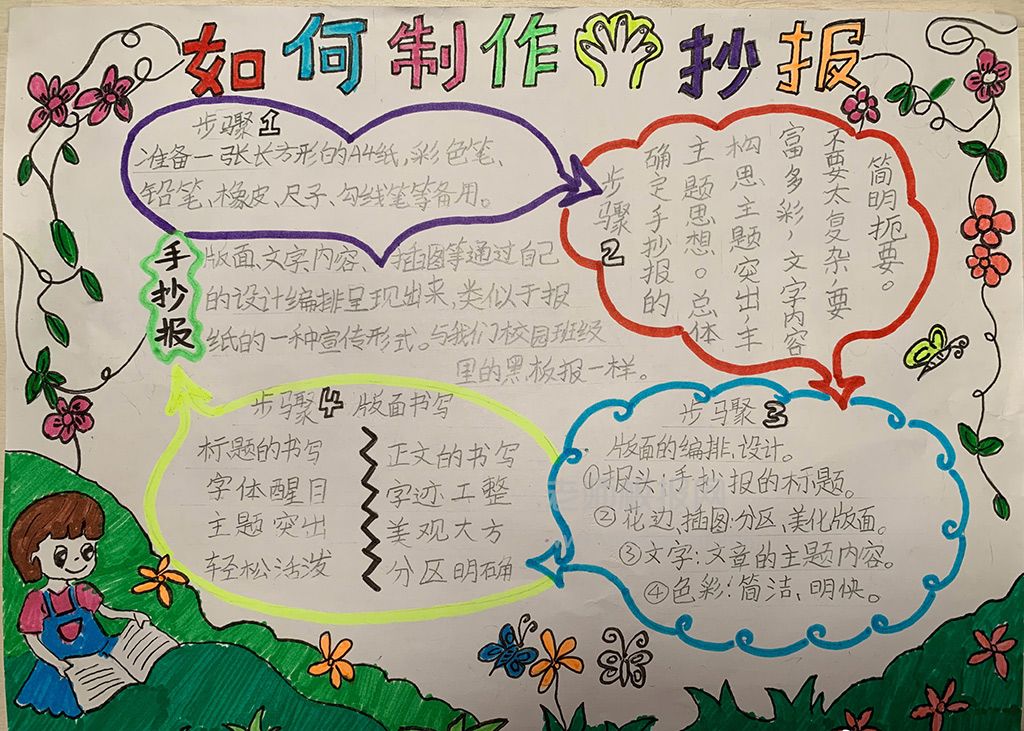 如何制作抄报
步骤1
准备一张长方形的A4纸,彩色笔、
铅笔、橡皮、尺子、勾线笔等备用。
步骤2
确定手抄报的
主题思想。总体
构思主题突出丰
富多彩,文字内容
不要太复杂,要
简明扼要。
手抄报
版面、文字内容、插图等通过自己
的设计编排呈现出来,类似于报
纸的一种宣传形式。与我们校园班级
里的黑板报一样。
步骤3
版面的编排、设计。
①报头:手抄报的标题。
②花边、插图:分区、美化版面。
③文字:文章的主题内容。
④色彩:简洁、明快。
步骤4 版面书写
标题的书写
字体醒目
主题突出
轻松活泼
正文的书写
字迹工整
美观大方
分区明确